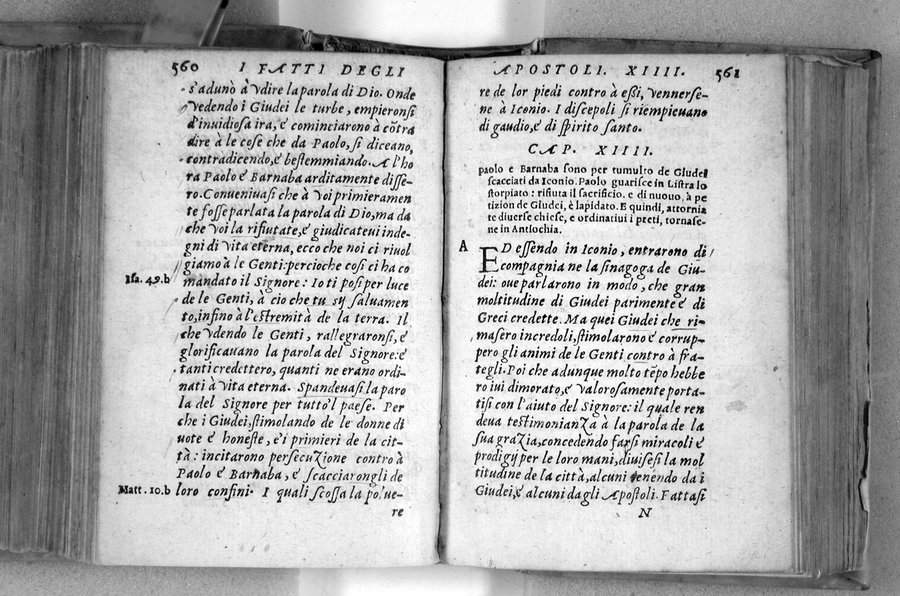 560 I FATTI DEGLI
s'adunò à vdire la parola di Dio. Onde
vedendo i Giudei le turbe, empieronsi
d'inuidiosa ira, e cominciarono à cõtra
dire à le cose che da Paolo, si diceano,
contradicendo, e bestemmiando. Al'ho
ra Paolo e Barnaba arditamente disse-
ro. Conueniuasi che à voi primieramen
te fosse parlata la parola di Dio, ma da
che voi la rifiutate, e giudicateui inde-
gni di vita eterna, ecco che noi ci riuol
giamo à le Genti: percioche cosi ci ha co
Isa. 49.b mandato il Signore: Io ti posi per luce
de le Genti, à cio che tu sij saluamen
to, infino à l'estremità de la terra. Il
che vdendo le Genti, rallegraronsi, e
glorificauano la parola del Signore: e
tanti credettero, quanti ne erano ordi-
nati à vita eterna. Spandeuasi la paro
la del Signore per tutto'l paese. Per
che i Giudei, stimolando de le donne di
uote e honeste, e i primieri de la cit-
tà: incitarono persecuzione contro à
Paolo e Barnaba, e scacciarongli de
Matt. 10.b loro confini. I quali scossa la polue-
re
APOSTOLI. XIIII. 561
re de lor piedi contro à essi, vennerse-
ne à Iconio. I discepoli si riempieuano
di gaudio, e di spirito santo.
CAP. XIIII.
paolo e Barnaba sono per tumulto de Giudei
scacciati da Iconio. Paolo guarisce in Listra lo
storpiato: rifiuta il sacrificio. e di nuouo, à pe
tizion de Giudei, è lapidato. E quindi, attornia
te diuerse chiese, e ordinatiui i preti, tornase-
ne in Antiochia.
A ED essendo in Iconio, entrarono di
compagnia ne la sinagoga de Giu-
dei: oue parlarono in modo, che gran
moltitudine di Giudei parimente e di
Greci credette. Ma quei Giudei che ri-
masero incredoli, stimolarono e corrup-
pero gli animi de le Genti contro à fra-
tegli. Poi che adunque molto tẽpo hebbe
ro iui dimorato, e valorosamente porta-
tisi con l'aiuto del Signore: il quale ren
deua testimonianza à la parola de la
sua grazia, concedendo farsi miracoli e
prodigij per le loro mani, diuisesi la mol
titudine de la città, alcuni tenendo da i
Giudei, e alcuni da gli Apostoli. Fattasi
N